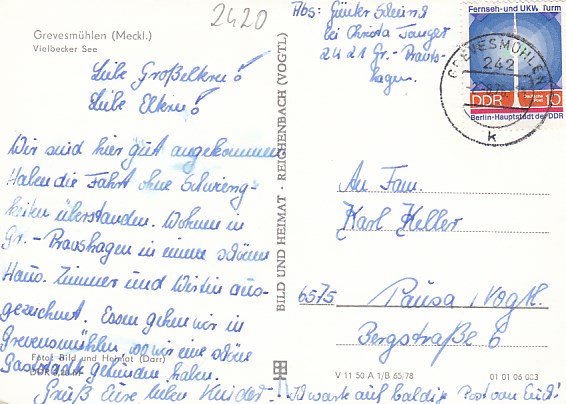 2420
Grevesmühlen (Meckl.)
Vielbecker See
Liebe Großeltern!
Liebe Eltern!
Wir sind hier gut angekommen
Haben die Fahrt ohne Schwierig-
keiten überstanden. Wohnen in
Gr.-Pravshagen in einem schönen
Haus. Zimmer und Wirtin aus-
gezeichnet. Essen gehen wir in
Grevesmühlen wo wir eine schöne
Gaststätte gefunden haben.
Grüß Eure lieben Kinder!!
Foto: Bild und Heimat (Darr)
DDR
BILD UND HEIMAT · REICHENBACH (VOGTL)
Abs: Günter
bei Christa
2421 Gr.-Pravs-
hagen.
Fernseh- und UKW-Turm
DDR
Deutsche Post
10
Berlin-Hauptstadt der DDR
GREVESMÜHLEN
242
k
An Fam.
Karl Keller
6575 Pausa /Vogtl.
Bergstraße 6
V 11 50 A 1/B 65/78
01 01 06 003
Ich warte auf baldige Post von Euch!